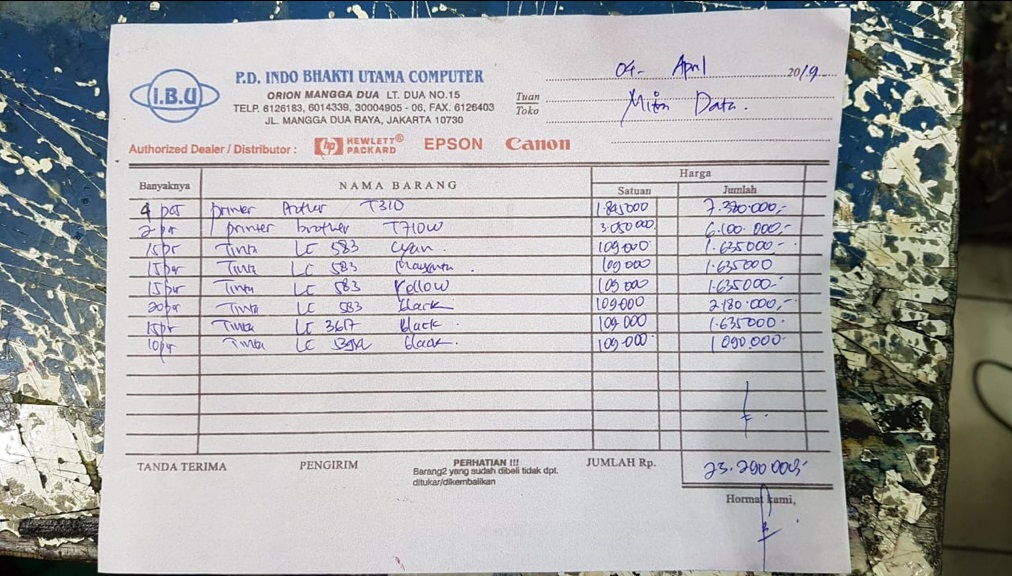 I.B.U
P.D. INDO BHAKTI UTAMA COMPUTER
ORION MANGGA DUA LT. DUA NO.15
TELP. 6126183, 6014339, 30004905 - 06, FAX. 6126403
JL. MANGGA DUA RAYA, JAKARTA 10730
04- April 2019
Tuan
Toko
Data.
Authorized Dealer / Distributor : hp HEWLETT® PACKARD EPSON Canon
Banyaknya NAMA BARANG Harga
Satuan Jumlah
4 printer T310 7.380.000,-
2 printer brother T710W 3.050.000 6.100.000,-
15 Tinta LC 583 Cyan 109.000 1.635.000-
15 Tinta LC 583 Magenta 109.000 1.635.000
15 Tinta LC 583 Yellow 109.000 1.635.000-
20 Tinta LC 583 black 109.000 2.180.000,-
15 Tinta LC 3617 black 109.000 1.635.000-
10 Tinta LC black 109.000 1.090.000-
TANDA TERIMA PENGIRIM PERHATIAN !!! JUMLAH Rp. 23.290.000,-
Barang2 yang sudah dibeli tidak dpt.
ditukar/dikembalikan
Hormat kami,